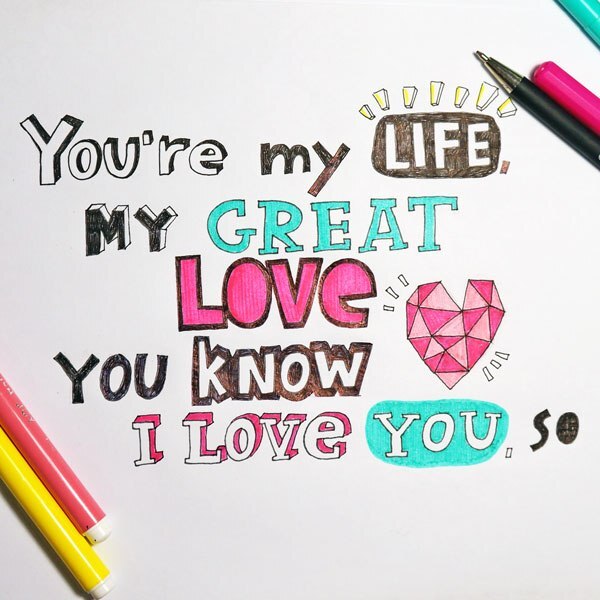 You're my LIFE.
MY GREAT
LOVE
YOU KNOW
I LOVE YOU, SO